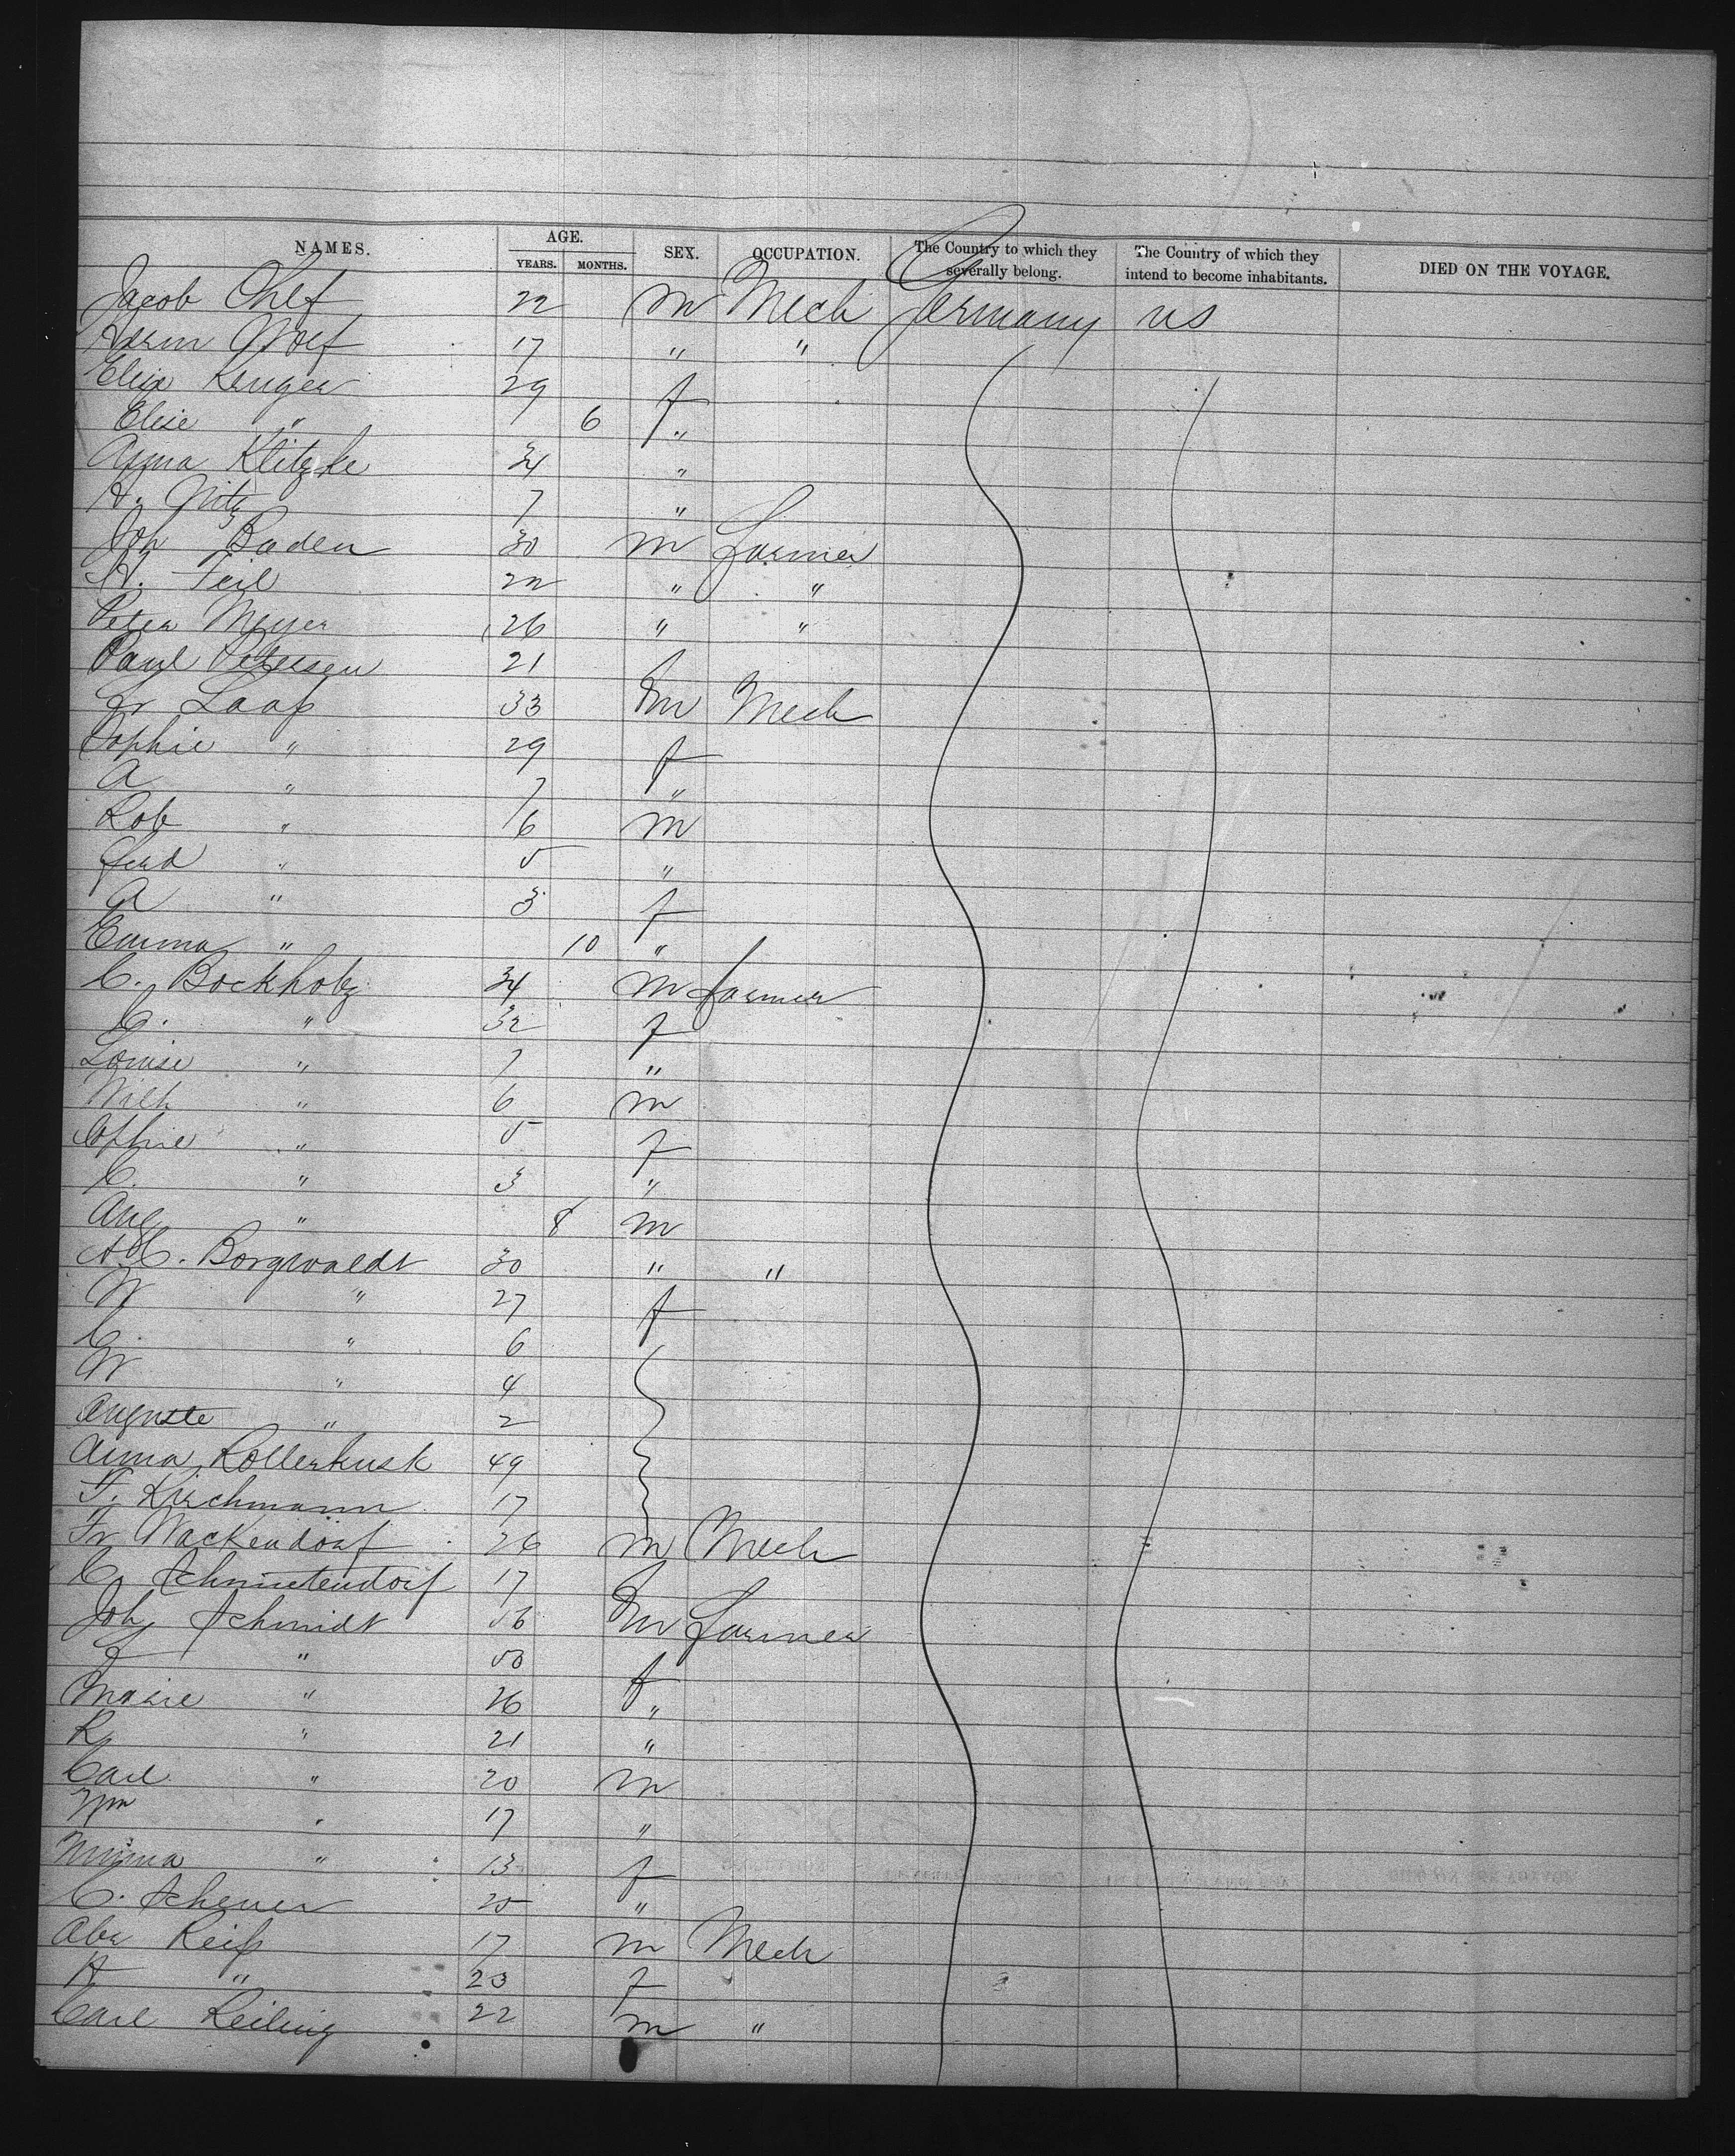 NAMES. AGE. SEX. OCCUPATION. The Country to which they severally belong. The Country of which they intend to become inhabitants. DIED ON THE VOYAGE.
YEARS. MONTHS.
Jacob 22 m Mech Germany us
Herm Wolf 17 " "
Kruger 29 f
Elise " 6 "
Anna Klitzke 34 "
H. 7 "
Joh Baden 30 m farmer
Teil 22 " "
Peter Meyer 26 " "
Paul Petersen 21
Fr 33 m Mech
Sophie " 29 f
A " 7 "
Rob " 6 m
Ferd " 5 "
A " 3 f
Emma " 10 "
C. Bockholz 34 m farmer
C. " 32 f
Louise " 7 "
Wilh " 6 m
Sophie " 5 f
C. " 3 "
Aug " 8 m
Borgwaldt 30 " "
W " 27 f
C. " 6
W " 4
Auguste " 2
Anna 49
F. Kirchmann 17
Fr Wackendorf 26 m Mech
C. 17
Joh Schmidt 56 m farmer
" 50 f
Marie " 26 "
R " 21 "
Carl " 20 m
Wm " 17 "
Minna " 13 f
C. Scheuer 25 "
17 m Mech
A " 20 f
Carl Reiling 22 m "